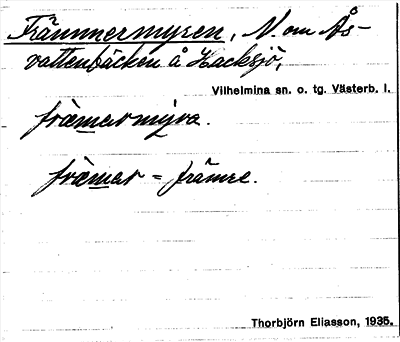 Främmermyren, N. om Ås-
vattenbäcken å Hacksjö,
Vilhelmina sn. o. tg. Västerb. l.
fræmarmyra.
fræmar = främre.
Thorbjörn Eliasson, 1935.